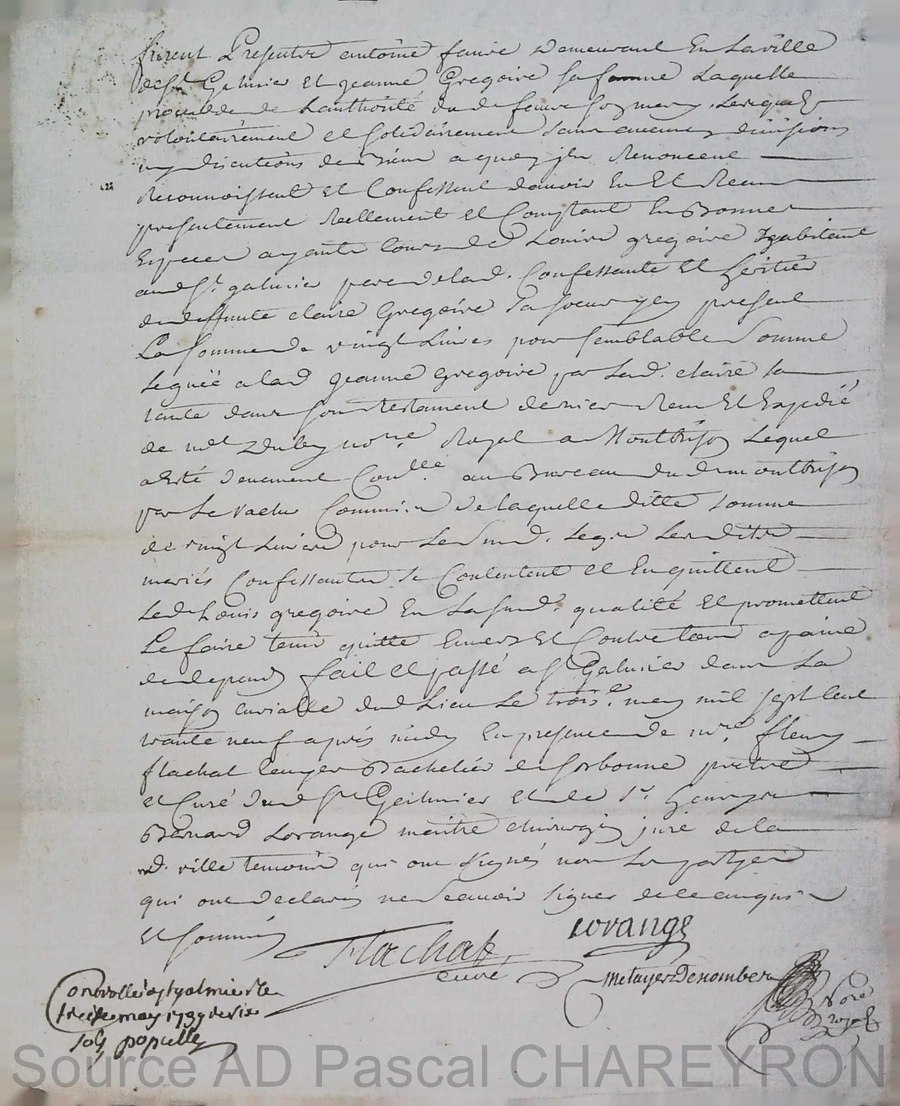 furent Presents antoine faure demeurant En La ville
de St Galmier Et jeanne Gregoire sa famme Laquelle
de Lauthorité dud faure son mary, Lesquels
volontairement et solidairement sans aucune division
ny discutions de Bien a quoy ils Renoncent
Reconnoissent Et Confessent davoir Eu Et Receu
presentement Reellement et Comptant En Bonnes
Especes ayants Cours de Louis gregoire habitant
aud St galmier pere de lad. Confessante Et heritier
de deffunte claire Gregoire sa soeur icy present
La somme de vingt Livres pour semblable somme
Leguée a lad jeanne Gregoire par lad. claire sa
tante dans son testament dernier Receu Et Expedié
de me nore Royal a Montbrison Lequel
a Esté Conllé au Bureau dud montbrison
par Commis de laquelle ditte somme
de vingt Livres pour Le susd. Legs Lesdits
mariés Confessants se Contentent et En quittent
Led Louis gregoire En sa susd. qualité Et promettent
Le faire tenir quitte Envers Et Contre tous a paine
de depens fait et passé a St Galmier dans La
maison curialle dud Lieu Le trois.e may mil sept cent
trante neuf apres midy En presence de mre fleury
flachat Bachelier de sorbonne pretre
et Curé dud St Galmier et de Sr
Bernard Lorange maitre chirurgien juré de la
d. ville temoins qui ont signés non Les parties
qui ont declarés ne scavoir signer de ce enquis
Et sommés
Flachat
curé
Lorange
metayer Denombez
Nore
royal
Controllé a st galmier le
treise may 1739 Receu
sols
Source AD Pascal CHAREYRON